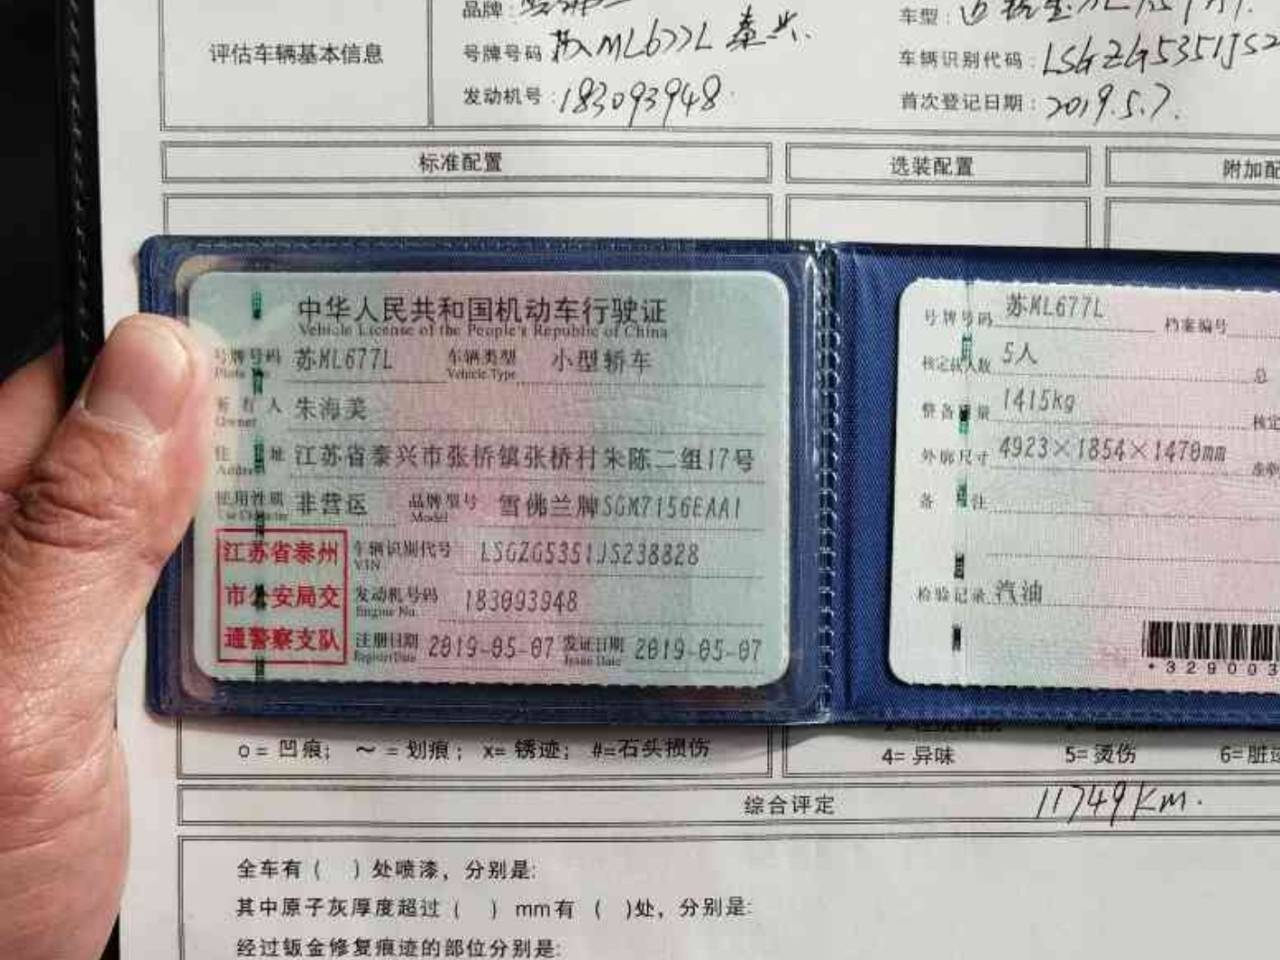 品牌：
车型：
评估车辆基本信息
号牌号码 苏ML677L 泰兴.
车辆识别代码：LSGZG5351JS2
发动机号：183093948
首次登记日期：2019.5.7.
标准配置
选装配置
附加配
中华人民共和国机动车行驶证
Vehicle License of the People's Republic of China
号牌号码 苏ML677L 车辆类型 小型轿车
Plate No. Vehicle Type
所有人 朱海美
Owner
住址 江苏省泰兴市张桥镇张桥村朱陈二组17号
Address
使用性质 非营运 品牌型号 雪佛兰牌SGM7156EAA1
Use Character Model
江苏省泰州
市公安局交
通警察支队
车辆识别代号 LSGZG5351JS238828
VIN
发动机号码 183093948
Engine No.
注册日期 2019-05-07 发证日期 2019-05-07
Register Date Issue Date
号牌号码 苏ML677L 档案编号
核定载人数 5人 总
整备质量 1415kg 核定
外廓尺寸 4923×1854×1470mm 准牵
备注
检验记录 汽油
*329003
o = 凹痕； ～ = 划痕； x= 锈迹； #=石头损伤
4= 异味 5= 烫伤 6= 脏
综合评定 11749Km.
全车有（ ）处喷漆，分别是:
其中原子灰厚度超过（ ）mm有（ )处，分别是:
经过钣金修复痕迹的部位分别是: